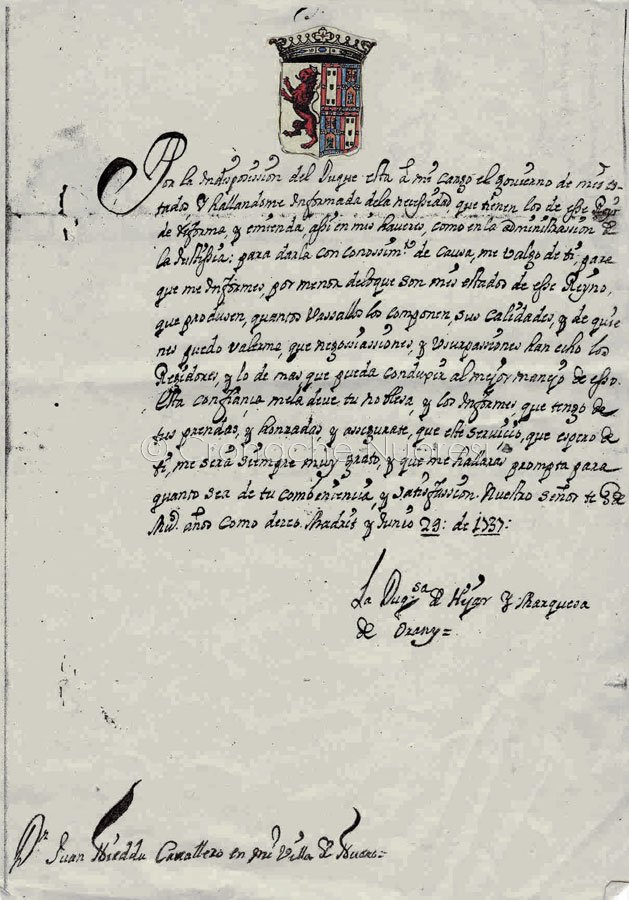 Por la Indisposission del Duque esta â mi cargo el govierno de mis es-
tados, y hallandome Informada de la necessidad, que tienen los de esse
de reforma, y emienda, assi en mis haveres, como en la administrasion de
la Justisia: para darla con conossim.to de causa, me valgo de ti, para
que me Informes, por menor desto que son mis estados de esse Reyno,
que produsen, quantos Vassallos los componen, sus calidades, y de quie-
nes puedo valerme, que negossiassiones, y Vsurpassiones han echo los
Regidores, y lo de mas que pueda condusir al mejor manejo de esso.
Esta confiansa me la deve tu noblesa, y los Informes que tengo de
tus prendas, y honrades, y assegurate, que este servicio, que espero de
ti, me serà siempre muy grato, y que me hallaras prompta para
quanto sea de tu combeniencia, y satisfassion. Nuestro Señor te G.de
Mu.s años como deseo. Madrid y Junio 29: de 1737:
La Duq.sa de Hijar y Marquesa
de Orany=
D.n Juan Nieddu Cavallero en mi Villa de Nuoro=
© Cronache Nuoresi